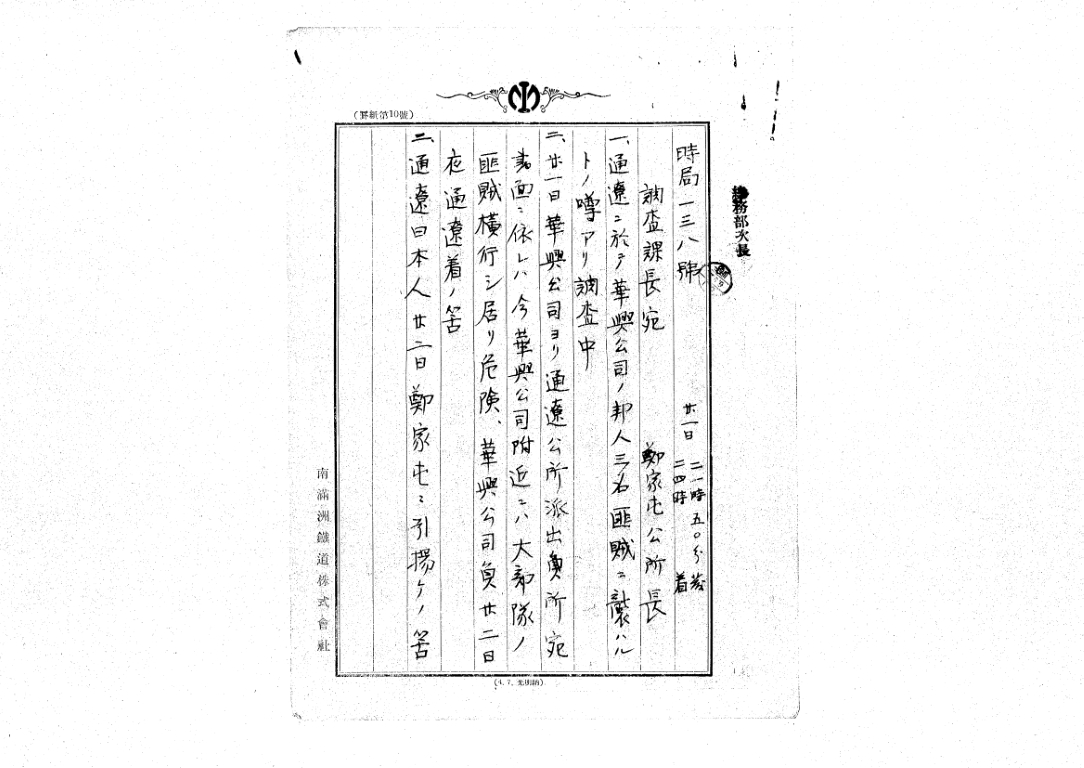 （罫紙第10號）
總務部次長
時局一三八號
廿一日 二一時五〇分發
二四時 着
調査課長宛
鄭家屯公所長
一、通遼ニ於テ華興公司ノ邦人三名匪賊ニ襲ハル
トノ噂アリ調査中
二、廿一日華興公司ヨリ通遼公所派出員所宛
書面ニ依レハ今華興公司附近ニハ大部隊ノ
匪賊橫行シ居リ危険、華興公司員廿二日
夜通遼着ノ筈
三、通遼日本人廿二日鄭家屯ニ引揚ケノ筈
南滿洲鐵道株式會社